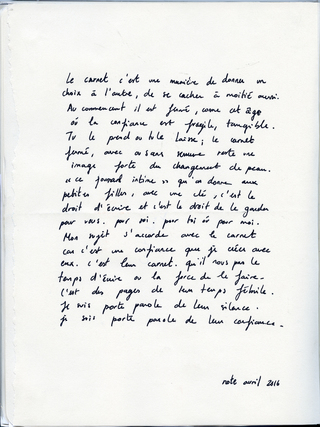 Le carnet c'est une manière de donner un
choix à l'autre, de se cacher à moitié aussi.
Au commencement il est fermé, comme cet âge
où la confiance est fragile, tangible.
Tu le prend ou tu le laisse ; le carnet
fermé, avec ou sans serrure reste une
image forte du changement de peau.
« ce journal intime » qu'on donne aux
petites filles, avec une clé, c'est le
droit d'écrire et c'est le droit de le garder
pour vous. pour soi. pour toi où pour moi.
Mon sujet s'accorde avec le carnet
car c'est une confiance que je crées avec
eux. c'est leur carnet. qu'il nous pas le
temps d'écrire ou la force de le faire -
C'est des pages de leur temps fébrile.
Je suis porte parole de leur silence.
je suis porte parole de leur confiance.
note avril 2016